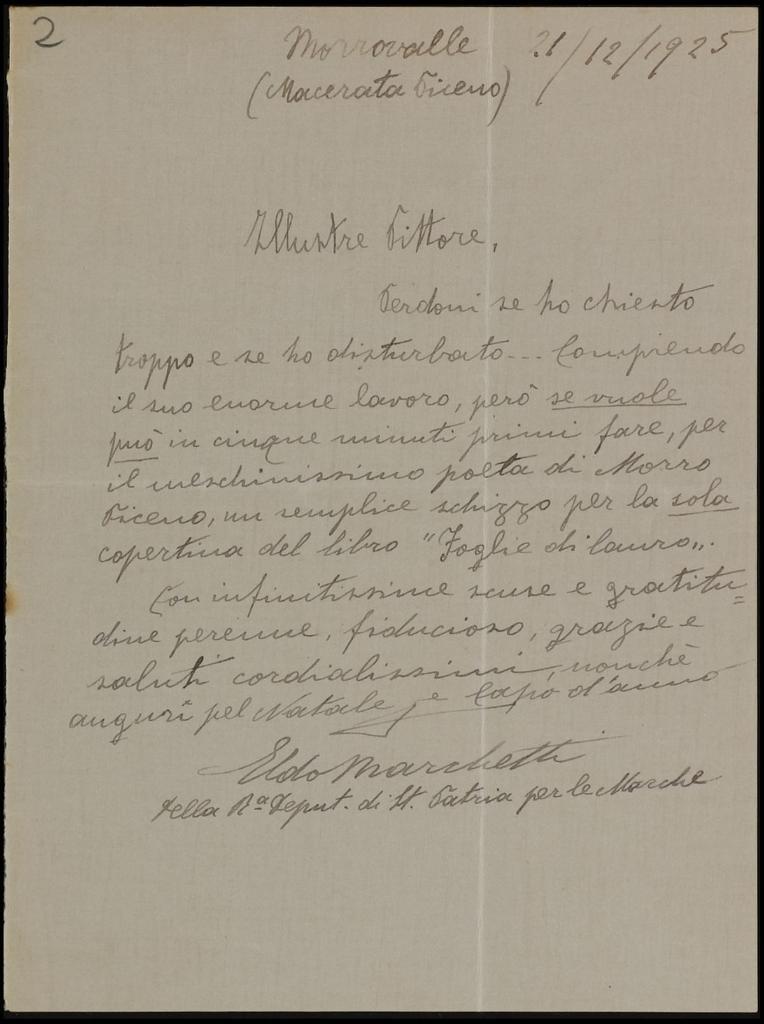 2
Morrovalle 21/12/1925
(Macerata Piceno)
Illustre Pittore,
Perdoni se ho chiesto
troppo e se ho disturbato... Comprendo
il suo enorme lavoro, però se vuole
può in cinque minuti primi fare, per
il meschinissimo poeta di Morro
Piceno, un semplice schizzo per la sola
copertina del libro "Foglie di lauro„.
Con infinitissime scuse e gratitu=
dine perenne, fiducioso, grazie e
saluti cordialissimi, nonchè
auguri pel Natale e Capo d'anno
Eldo Marchetti
della Rª Deput. di St. Patria per le Marche